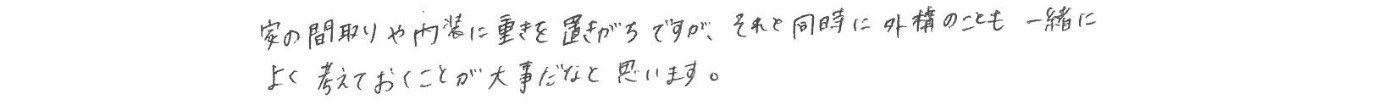 家の間取りや内装に重きを置きがちですが、それと同時に外構のことも一緒に
よく考えておくことが大事だなと思います。